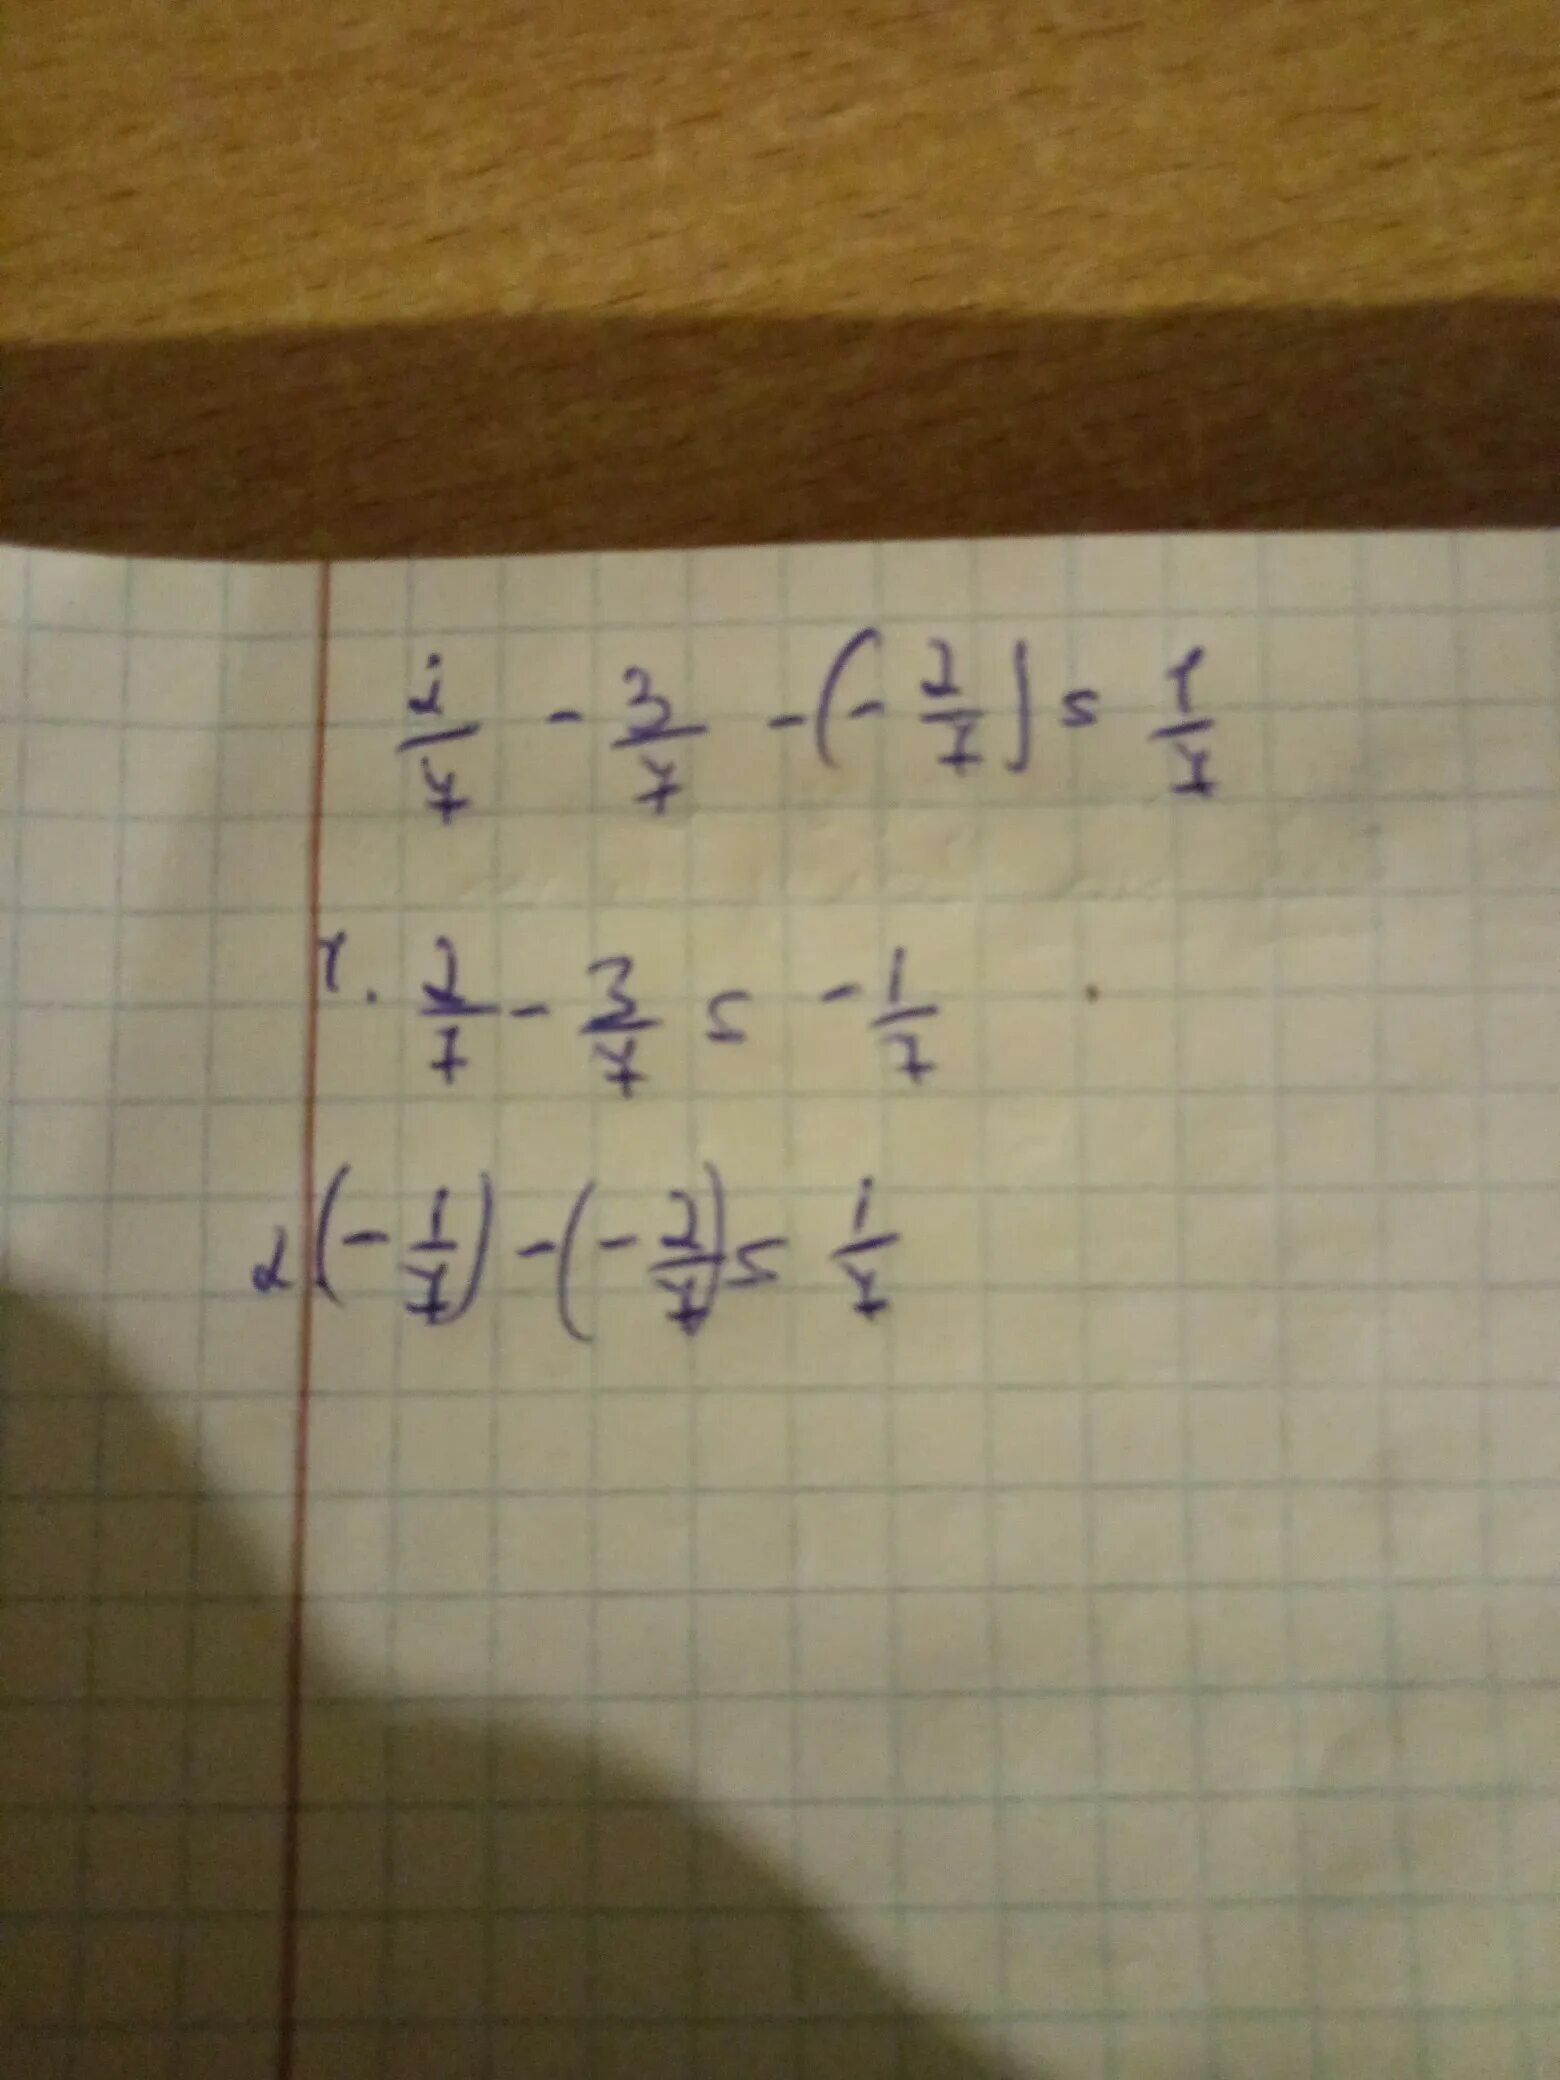 2/7 - 3/7 - (- 2/7) = 1/7
1. 2/7 - 3/7 = - 1/7
2 (- 1/7) - (- 2/7) = 1/7